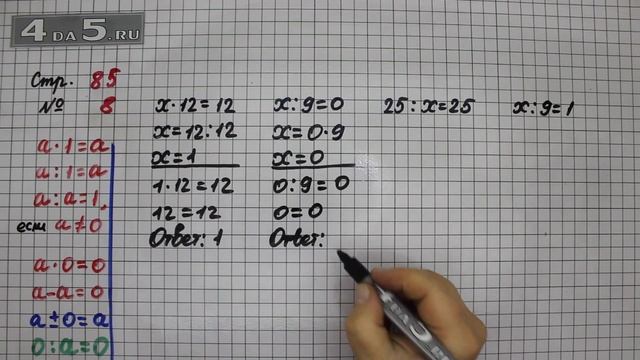 4DA5.RU
Стр. 85
№ 8
a·1=a
a:1=a
a:a=1,
если a≠0
a·0=0
a-a=0
a±0=a
0:a=0
x·12=12
x=12:12
x=1
1·12=12
12=12
Ответ: 1
x:9=0
x=0·9
x=0
0:9=0
0=0
Ответ:
25:x=25
x:9=1
4DA5